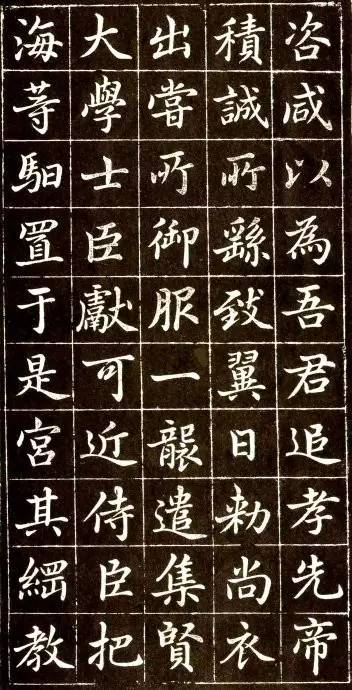 咨咸以為吾君追孝先帝
積誠所繇致翼日勑尚衣
出嘗所御服一襲遣集賢
大學士臣獻可近侍臣把
海等馹置于是宮其綱教